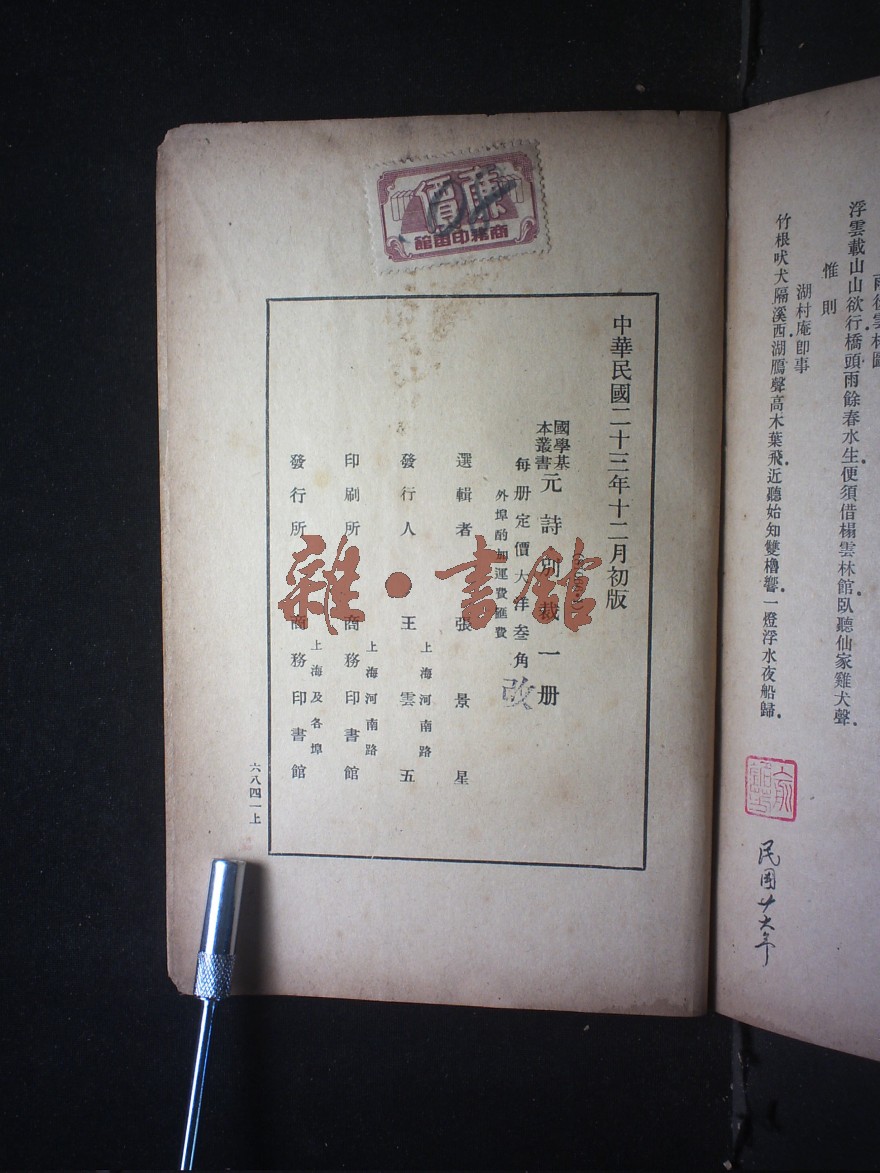 浮雲載山山欲行橋頭雨餘春水生便須借榻雲林館臥聽仙家雞犬聲
惟則
湖村庵卽事
竹根吠犬隔溪西湖鴈聲高木葉飛近聽始知雙櫓響一燈浮水夜船歸
民國廿六年
廉價
商務印書館
中華民國二十三年十二月初版
國學基本叢書
元詩別裁一册
每册定價大洋叁角
改
外埠酌加運費匯費
選輯者 張景星
發行人 王雲五
上海河南路
印刷所 商務印書館
上海河南路
發行所 商務印書館
上海及各埠
六八四一上
雜·書館